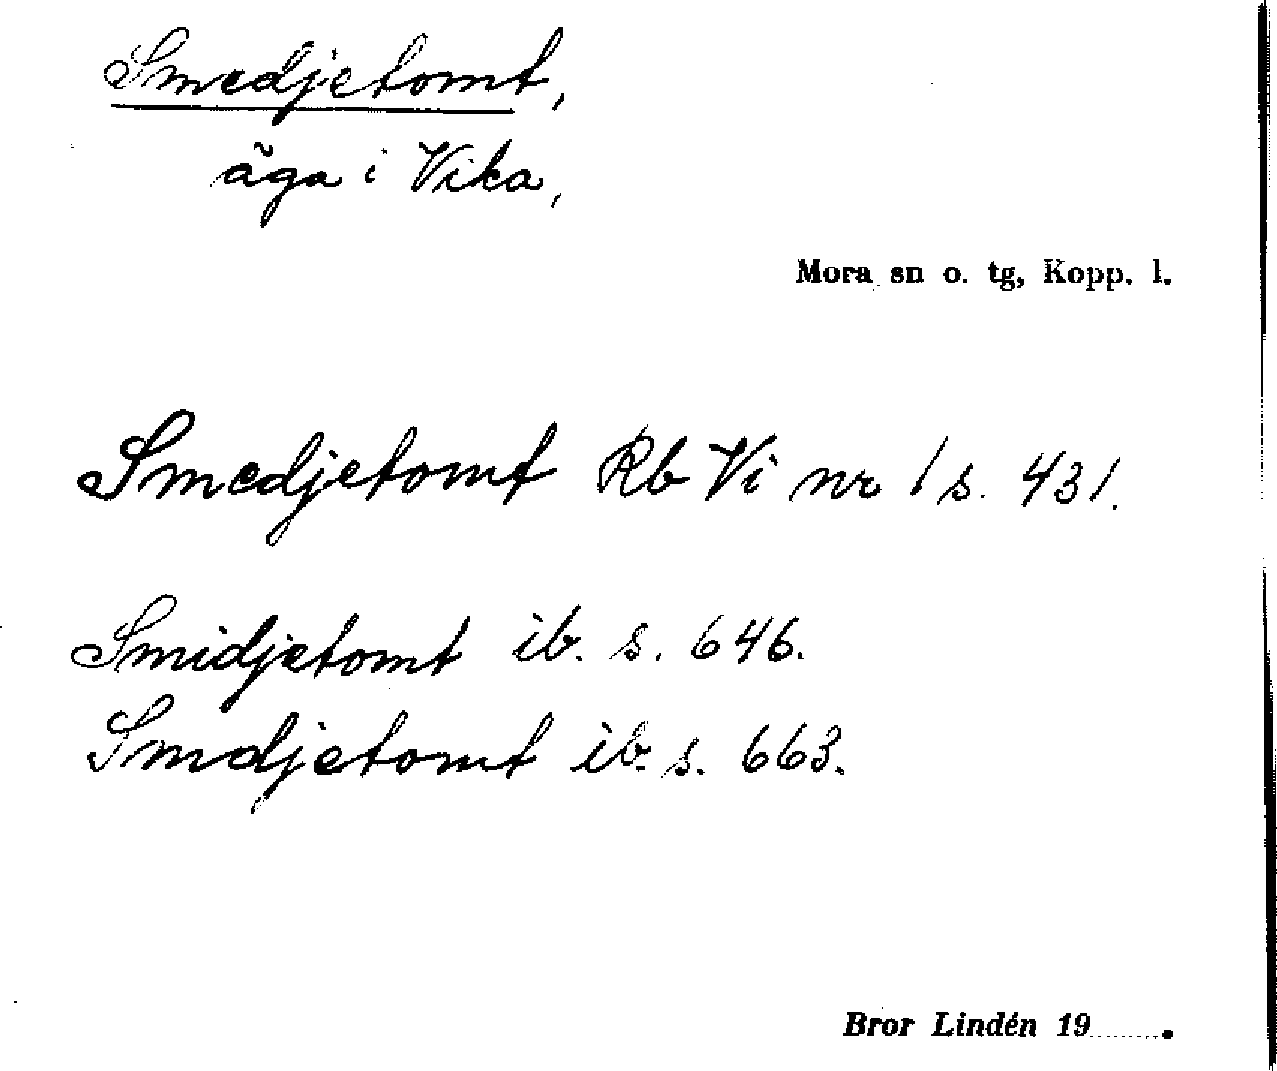 Smedjetomt,
äga i Vika,
Mora sn o. tg, Kopp. l.
Smedjetomt Rb Vi nr 1 s. 431.
Smidjetomt ib. s. 646.
Smdjetomt ib. s. 663.
Bror Lindén 19........